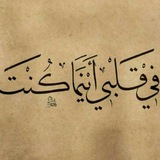 في قَلبي أينَما كُنتَ